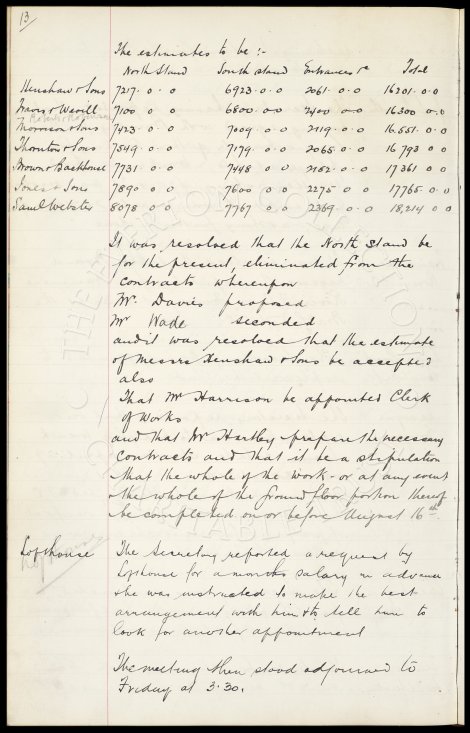 13
The estimates to be :-
North Stand South stand Entrances &c Total
Henshaw & Sons 7217. 0. 0 6923. 0. 0 2061. 0. 0 16201. 0. 0
7100 0 0 6800. 0. 0 2400 0. 0 16300 0. 0
Morrison & Sons 7423. 0. 0 7009. 0. 0 2119. 0. 0 16.551. 0. 0
Thornton & Sons 7549. 0. 0 7179. 0. 0 2065. 0. 0 16793 0. 0
Brown & Backhouse 7731 0 0 7448 0 0 2182. 0 0 17361 0. 0
Jones & Sons 7890 0 0 7600 0 0 2275 0 0 17765. 0 0
Saml Webster 8078 0 0 7767 0 0 2369. 0. 0 18,214 0. 0
It was resolved that the North Stand be
for the present, eliminated from the
contracts whereupon
Mr. Davies proposed
Mr Wade seconded
and it was resolved that the estimate
of Messrs Henshaw & Sons be accepted
also
That Mr Harrison be appointed Clerk
of Works
and that Mr Hartley prepare the necessary
contracts and that it be a stipulation
that the whole of the work - or at any event
the whole of the ground floor portion thereof
be completed on or before August 16th.
Lofthouse The Secretary reported a request by
Lofthouse for a months salary in advance
& he was instructed to make the best
arrangement with him & to tell him to
look for another appointment
The meeting then stood adjourned to
Friday at 3.30.